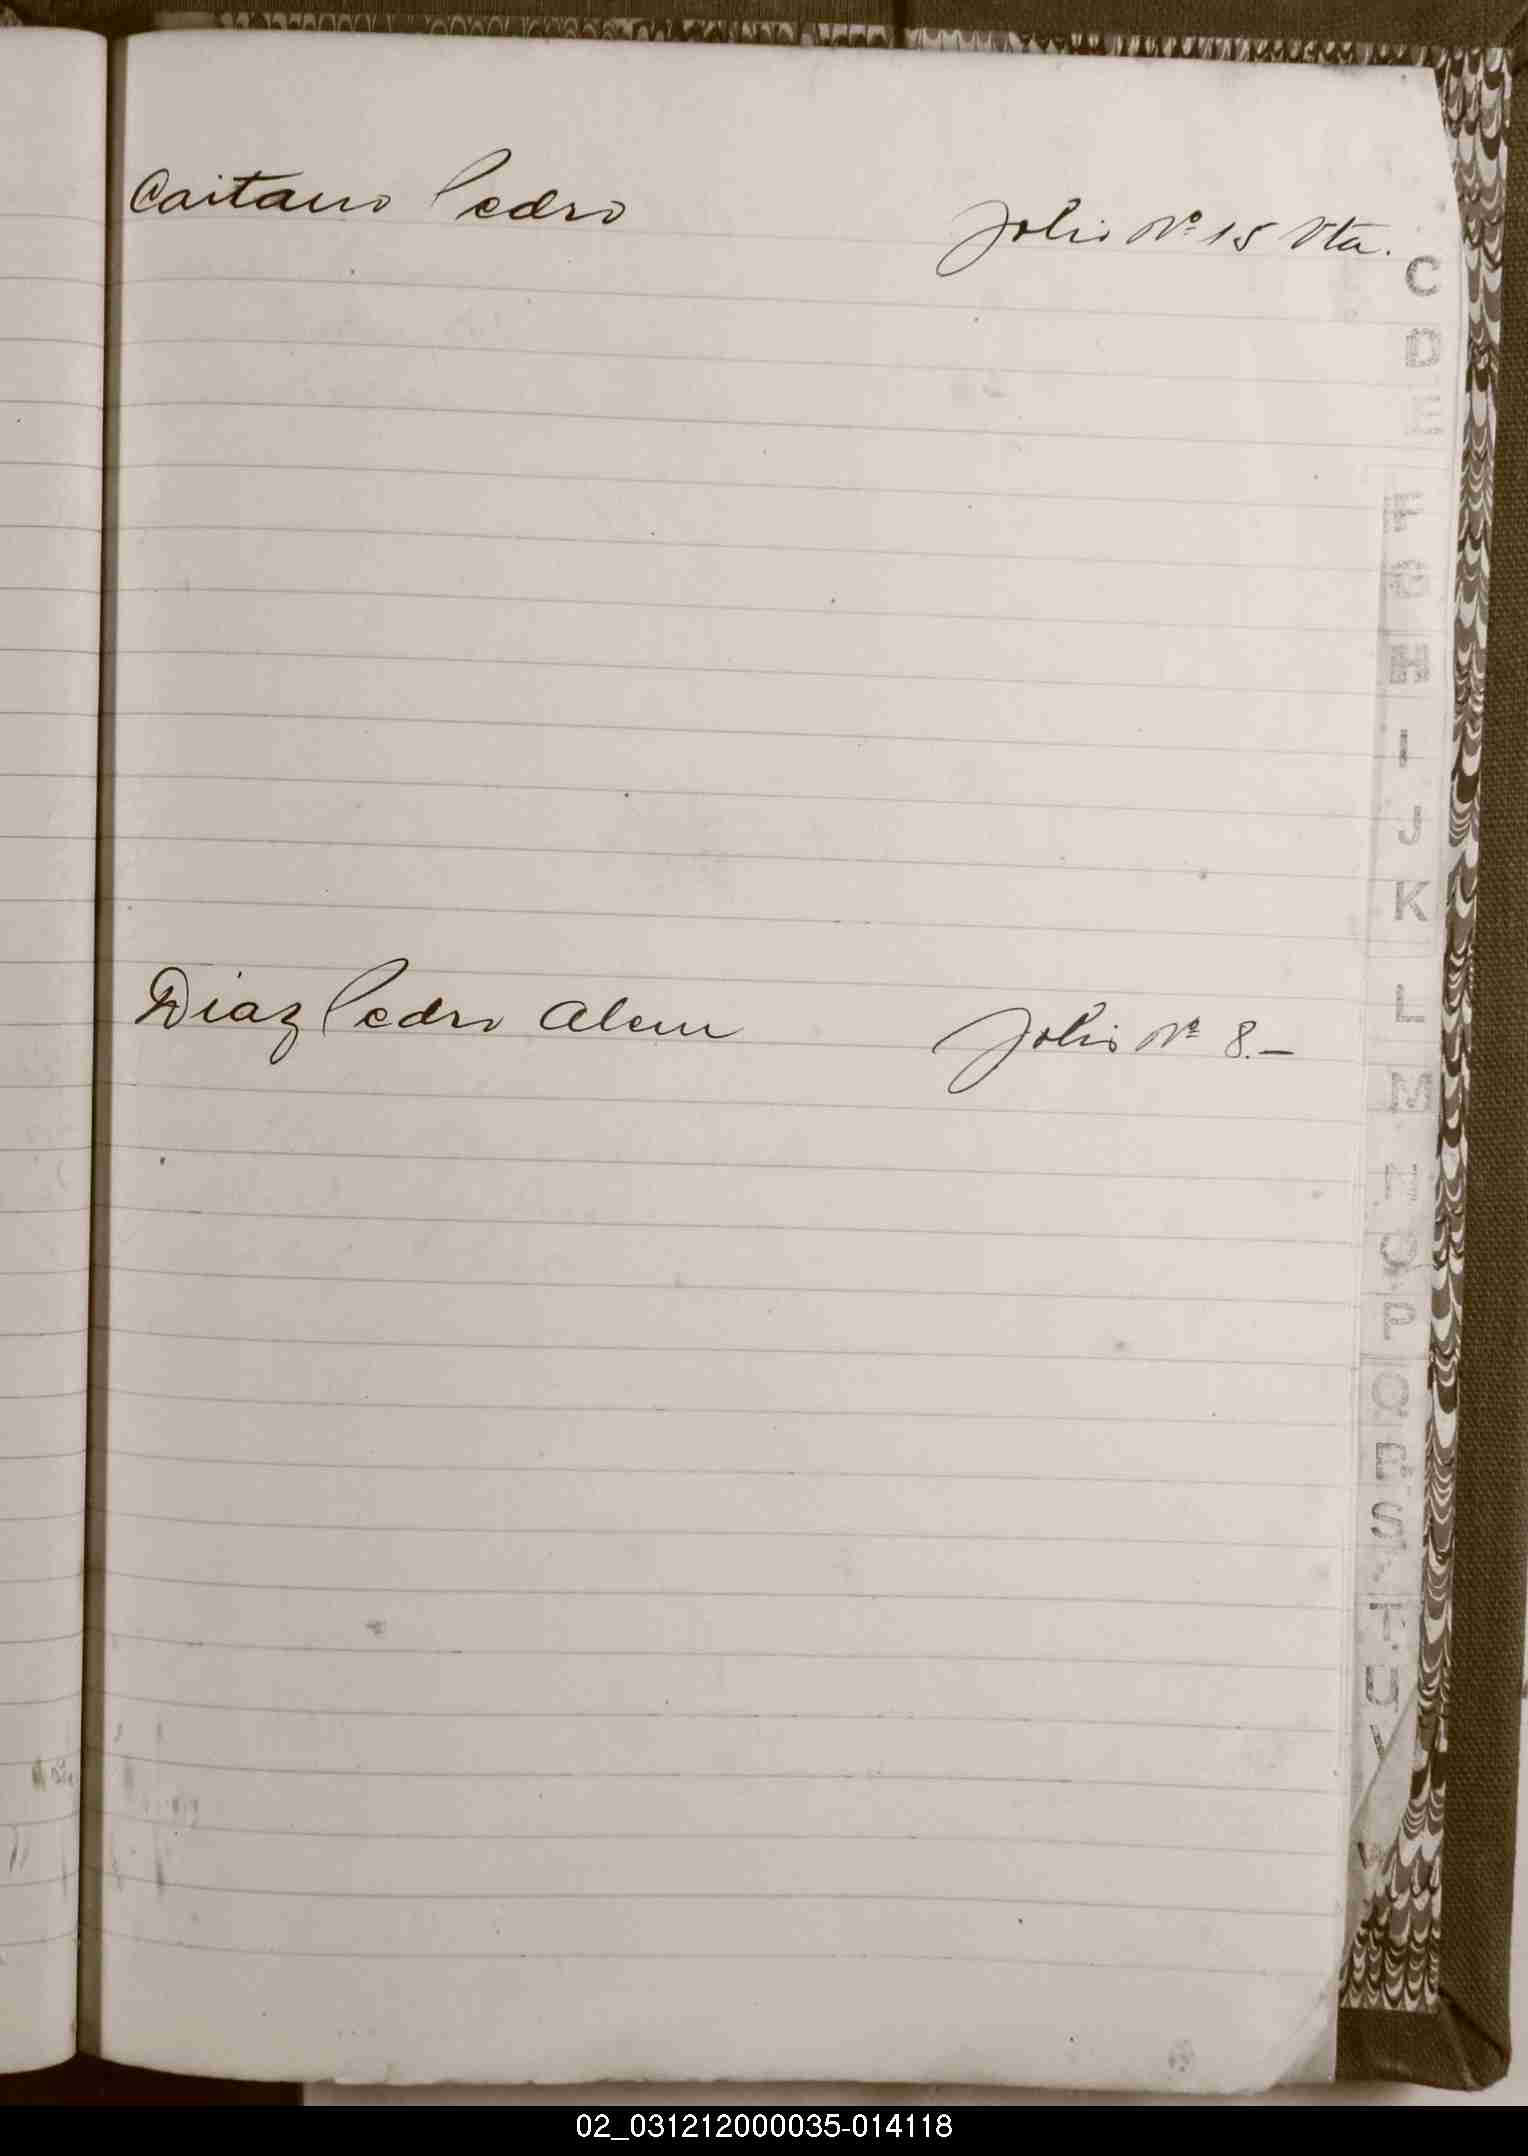 Caitano Pedro Folio Nº 15 Vta.
Diaz Pedro Alem Folio Nº 8.—
C
D
E
F
G
H
I
J
K
L
M
O
P
Q
R
S
T
U
V
02_031212000035-014118